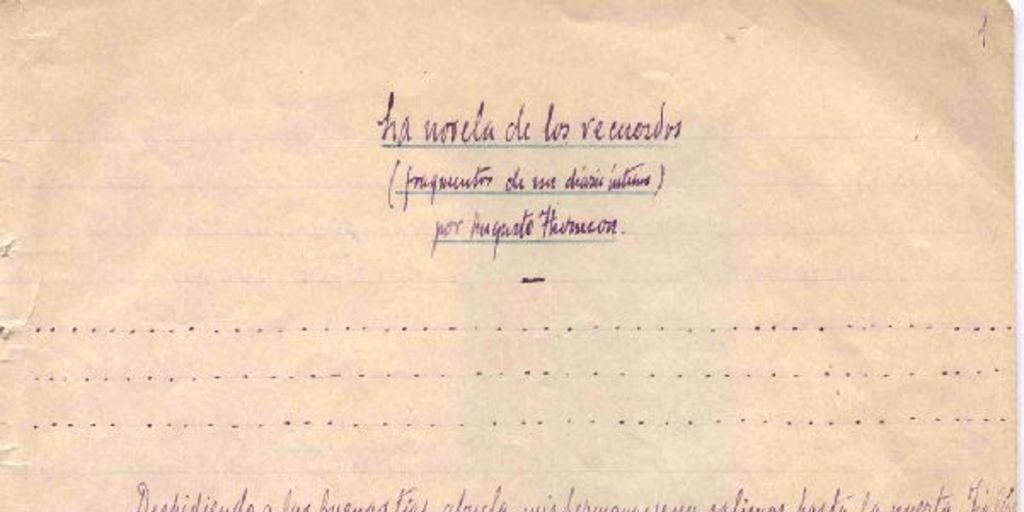 1
La novela de los recuerdos
(fragmentos de un diario íntimo)
por Augusto Thomson.
Despidiendo a las buenas tías, abuela, mis hermanos y yo salimos hasta la puerta